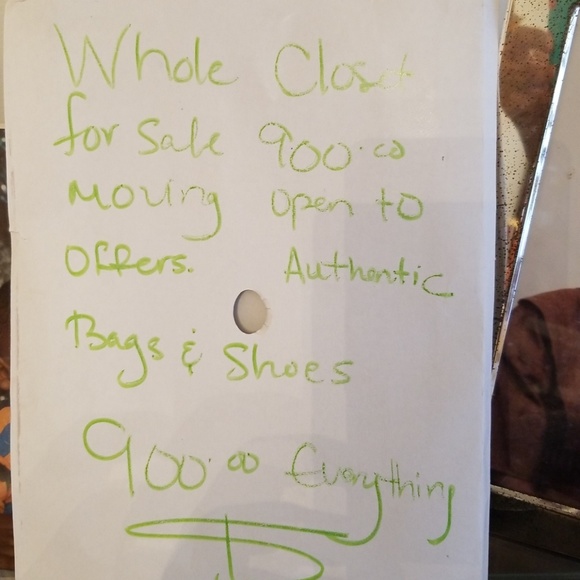 Whole Closet
for Sale 900.00
Moving Open to
Offers. Authentic
Bags & Shoes
900.00 Everything